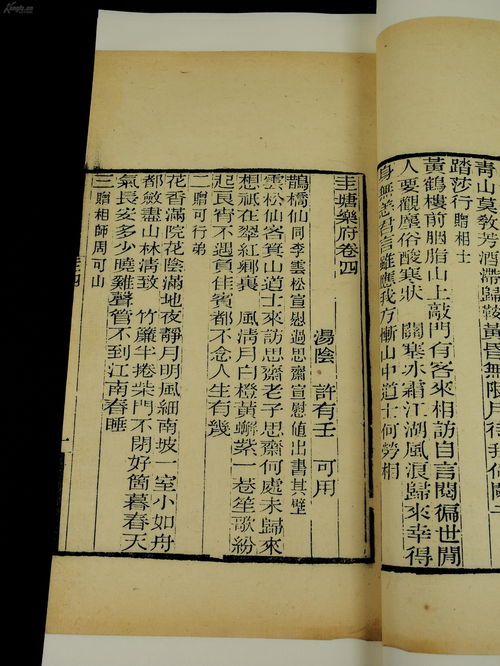 青山莫教芳酒滯歸鞍黃昏無限
踏莎行贈相士
黃鶴樓前胭脂山上敲門有客來相訪自言閱徧世閒
人要觀塵俗酸寒狀　關寒冰霜江湖風浪歸來幸得
身無恙君言雖應我方慚山中道士何勞相
圭塘樂府卷四
湯陰　許有壬　可用
鵲橋仙同李雲松宣慰過思齋宣慰値出書其壁
雲松仙客箕山道士來訪思齋老子思齋何處未歸來
想祇在翠紅鄉裏　風淸月白橙黃蠏紫一卷笙歌紛
起良宵不遇負佳賓都不念人生有幾
二贈可行弟
花香滿院花陰滿地夜靜月明風細南坡一室小如舟
都斂盡山林淸致　竹簾半捲柴門不閉好箇暮春天
氣長安多少曉雞聲管不到江南春睡
三贈相師周可山